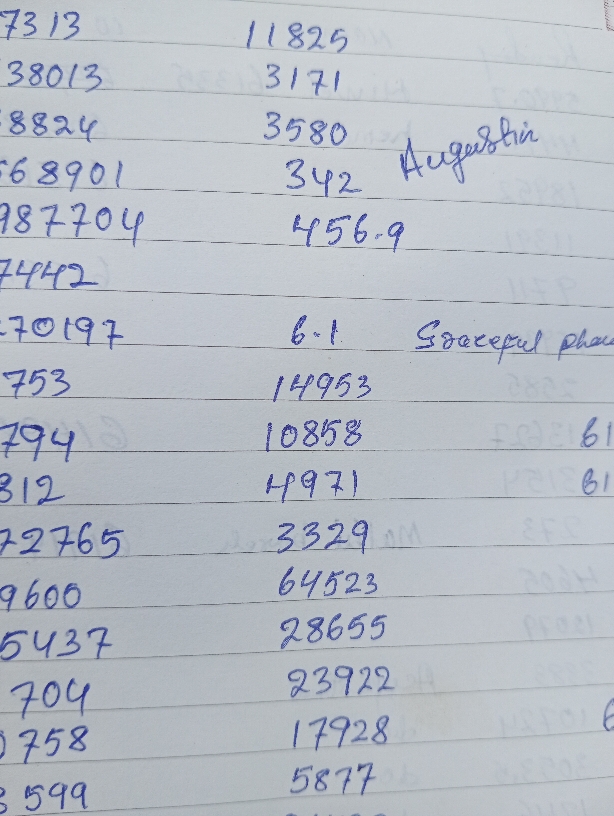 7313 11825
38013 3171
8824 3580 Augustin
568901 342
987704 456.9
7442
270197 6.1
753 14953
794 10858 61
312 4971 61
72765 3329
9600 64523
5437 28655
704 23922
0758 17928 6
3599 5877